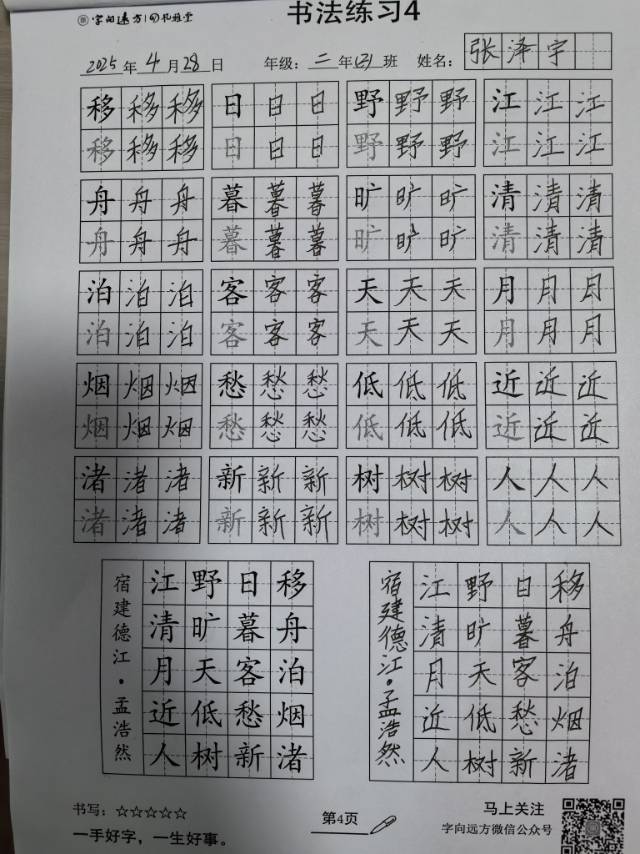 字向远方 书法练习4
2025年4月28日 年级：二年(3)班 姓名：张泽宇
移移移 日日日 野野野 江江江
移移移 日日日 野野野 江江江
舟舟舟 暮暮暮 旷旷旷 清清清
舟舟舟 暮暮暮 旷旷旷 清清清
泊泊泊 客客客 天天天 月月月
泊泊泊 客客客 天天天 月月月
烟烟烟 愁愁愁 低低低 近近近
烟烟烟 愁愁愁 低低低 近近近
渚渚渚 新新新 树树树 人人人
渚渚渚 新新新 树树树 人人人
宿建德江·孟浩然
移舟泊烟渚
日暮客愁新
野旷天低树
江清月近人
宿建德江·孟浩然
移舟泊烟渚
日暮客愁新
野旷天低树
江清月近人
书写：☆☆☆☆☆
一手好字，一生好事。
第4页
马上关注
字向远方微信公众号